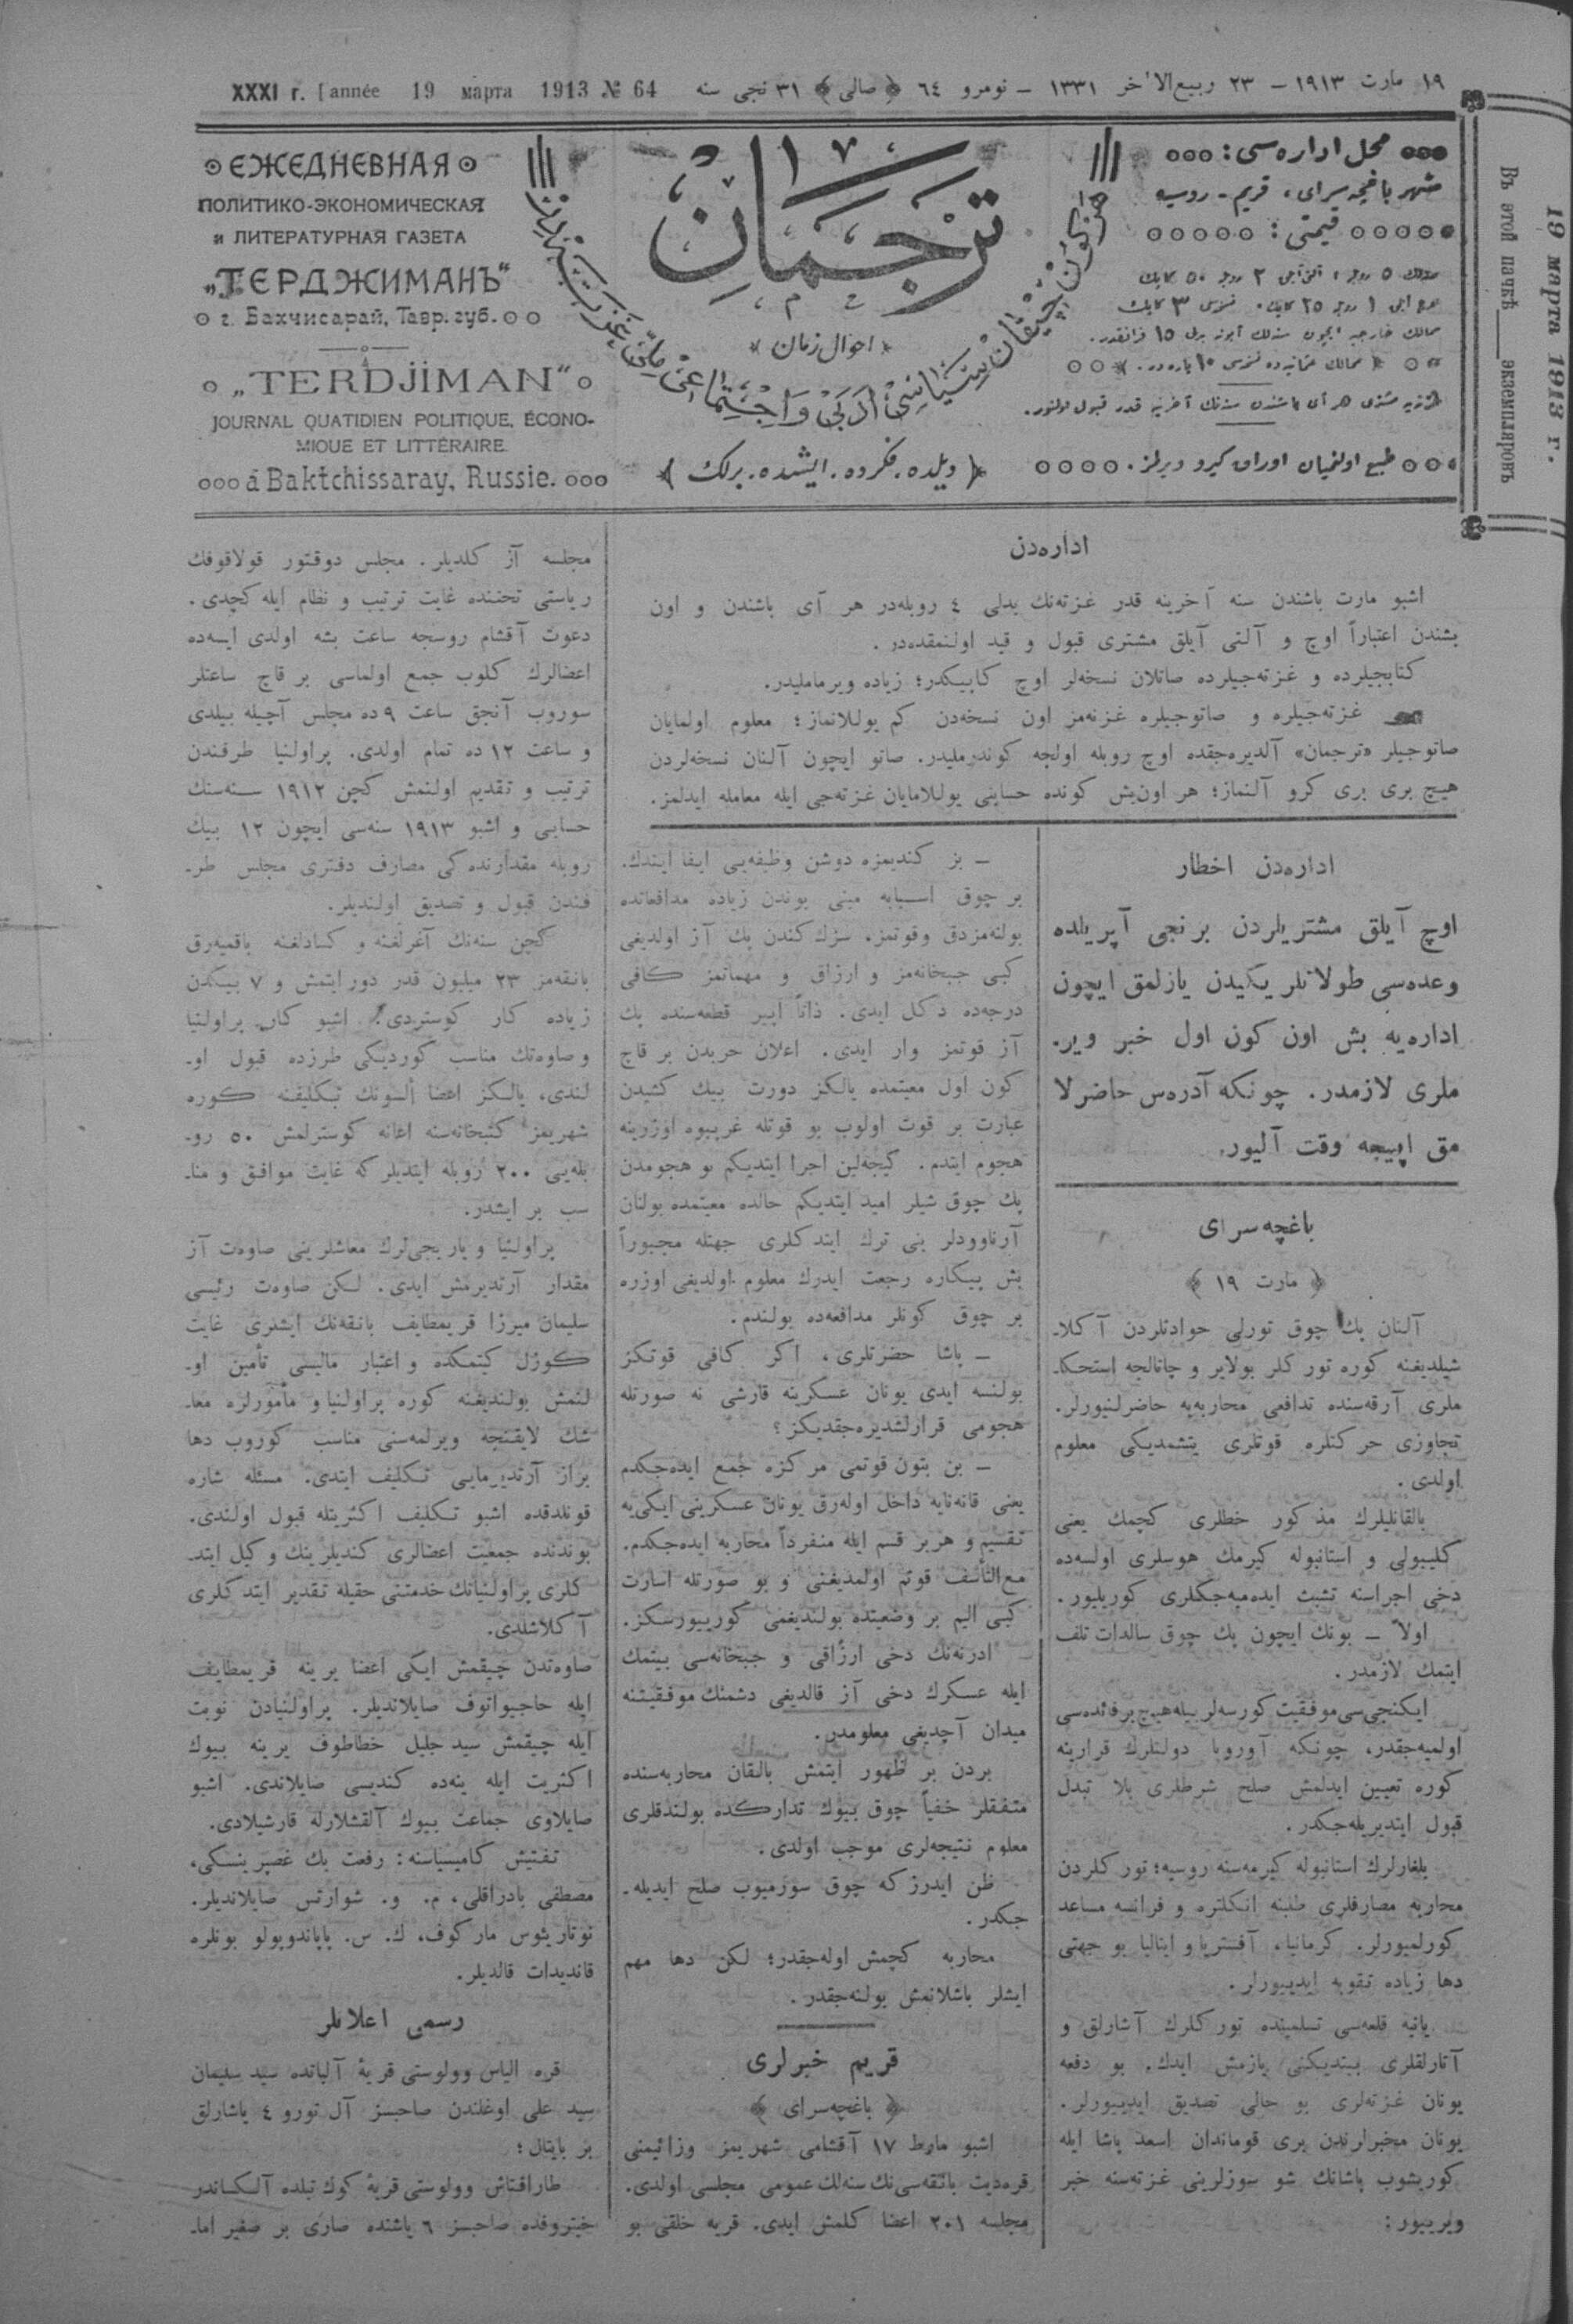 XXXI г. [année 19 марта 1913 № 64 ١٩ مارت ١٩١٣ – ٢٣ ربيع الآخر ١٣٣١ – نومرو ٦٤ ﴿صالی﴾ ٣١ نجی سنه
ЕЖЕДНЕВНАЯ
ПОЛИТИКО-ЭКОНОМИЧЕСКАЯ
и ЛИТЕРАТУРНАЯ ГАЗЕТА
„ТЕРДЖИМАНЪ“
г. Бахчисарай, Тавр. губ.
„TERDJİMAN“
JOURNAL QUATIDIEN POLITIQUE, ÉCONO-
MIQUE ET LITTÉRAIRE
á Baktchissaray, Russie.
ترجمان
﴿احوال زمان﴾
﴿ديلده. فكرده. ايشده. برلك﴾
محل اداره‌سی:
شهر باغچه‌سرای، قريم- روسيه
قيمتی:
طبع اولنميان اوراق كيرو ويرلمز.
19 марта 1913 г.
Въ этой пачкѣ ____ экземпляровъ
اداره‌دن
اشبو مارت باشندن سنه آخرينه قدر غزته‌نك بدلی ٤ روبله‌در هر آی باشندن و اون
بشندن اعتباراً اوچ و آلتی آيلق مشتری قبول و قيد اولنمقده‌در.
كتابجيلرده و غزته‌جيلرده صاتلان نسخه‌لر اوچ كاپيكدر؛ زياده ويرماملیدر.
غزته‌جيلره و صاتوجيلره غزته‌مز اون نسخه‌دن كم يوللانماز؛ معلوم اولمايان
صاتوجيلر «ترجمان» آلديره‌جقده اوچ روبله اولجه كوندرمليدر. صاتو ايچون آلنان نسخه‌لردن
هيچ بری بری كرو آلنماز؛ هر اون‌بش كونده حسابنی يوللامايان غزته‌جی ايله معامله ايدلمز.
اداره‌دن اخطار
اوچ آيلق مشتريلردن برنجی آپريلده
وعده‌سی طولانلر يكيدن يازلمق ايچون
اداره‌يه بش اون كون اول خبر وير-
ملری لازمدر. چونكه آدره‌س حاضرلا
مق اپيجه وقت آليور.
باغچه‌سرای
﴿مارت ١٩﴾
آلنان پك چوق تورلی حوادثلردن آكلا-
شيلديغنه كوره توركلر بولاير و چاتالجه استحكا-
ملری آرقه‌سنده تدافعی محاربه‌يه حاضرلنيورلر.
تجاوزی حركتلره قوتلری يتشمديكی معلوم
اولدی.
بالقانليلرك مذكور خطلری كچمك يعنی
كليبولی و استانبوله كيرمك هوسلری اولسه‌ده
دخی اجراسنه تشبث ايده‌ميه‌جكلری كوريليور.
اولاً – بونك ايچون پك چوق سالدات تلف
ايتمك لازمدر.
ايكنجی‌سی موفقيت كورسه‌لر بيله هيچ بر فائده‌سی
اولميه‌جقدر، چونكه آوروپا دولتلرك قرارينه
كوره تعيين ايدلمش صلح شرطلری بلا تبدل
قبول ايتديريله‌جكدر.
بلغارلرك استانبوله كيرمه‌سنه روسيه؛ توركلردن
محاربه مصارفلری طلبنه انكلتره و فرانسه مساعد
كورلميورلر. كرمانيا، آفستريا و ايتاليا بو جهتی
دها زياده تقويه ايدييورلر.
يانيه قلعه‌سی تسلمينده توركلرك آشارلق و
آتارلقلری بيتديكنی يازمش ايدك. بو دفعه
يونان غزته‌لری بو حالی تصديق ايدييورلر.
يونان مخبرلرندن بری قوماندان اسعد پاشا ايله
كوريشوب پاشانك شو سوزلرينی غزته‌سنه خبر
ويرييور:
– بز كنديمزه دوشن وظيفه‌یی ايفا ايتدك.
بر چوق اسبابه مبنی بوندن زياده مدافعاتده
بولنه‌مزدق وقوتمز. سزك كندن پك آز اولديغی
كبی جبخانه‌مز و ارزاق و مهماتمز كافی
درجه‌ده دكل ايدی. ذاتاً اپير قطعه‌سنده پك
آز قوتمز وار ايدی. اعلان حربدن بر قاچ
كون اول معيتمده يالكز دورت بيك كشيدن
عبارت بر قوت اولوب بو قوتله غريبوه اوزرينه
هجوم ايتدم. كيجه‌لين اجرا ايتديكم بو هجومدن
پك چوق شيلر اميد ايتديكم حالده معيتمده بولنان
آرناوودلر بنی ترك ايتدكلری جهتله مجبوراً
بش بيكاره رجعت ايدرك معلوم اولديغی اوزره
بر چوق كونلر مدافعه‌ده بولندم.
– پاشا حضرتلری، اكر كافی قوتكز
بولنسه ايدی يونان عسكرينه قارشی نه صورتله
هجومی قرارلشديره‌جقديكز؟
– بن بتون قوتمی مركزه جمع ايده‌جكدم
يعنی قانه‌تايه داخل اوله‌رق يونان عسكرينی ايكی‌يه
تقسيم و هر بر قسم ايله منفرداً محاربه ايده‌جكدم.
مع‌التأسف قوتم اولمديغنی و بو صورتله اسارت
كبی اليم بر وضعيتده بولنديغمی كورييورسكز.
ادرنه‌نك دخی ارزاقی و جبخانه‌سی بيتمك
ايله عسكرك دخی آز قالديغی دشمنك موفقيتنه
ميدان آچديغی معلومدر.
بردن بر ظهور ايتمش بالقان محاربه‌سنده
متفقلر خفياً چوق بيوك تداركده بولندقلری
معلوم نتيجه‌لری موجب اولدی.
ظن ايدرز كه چوق سورميوب صلح ايديله-
جكدر.
محاربه كچمش اوله‌جقدر؛ لكن دها مهم
ايشلر باشلانمش بولنه‌جقدر.
قريم خبرلری
﴿باغچه‌سرای﴾
اشبو مارط ١٧ آقشامی شهريمز وزائيمنی
قره‌ديت بانقه‌سی‌نك سنه‌لك عمومی مجلسی اولدی.
مجلسه ٢٠١ اعضا كلمش ايدی. قريه خلقی بو
مجلسه آز كلديلر. مجلس دوقتور قولاقوفك
رياستی تحتنده غايت ترتيب و نظام ايله كچدی.
دعوت آقشام روسجه ساعت بشه اولدی ايسه‌ده
اعضالرك كلوب جمع اولماسی بر قاچ ساعتلر
سوروب آنجق ساعت ٩ ده مجلس آچيله بيلدی
و ساعت ١٢ ده تمام اولدی. پراولنيا طرفندن
ترتيب و تقديم اولنمش كچن ١٩١٢ سنه‌سنك
حسابی و اشبو ١٩١٣ سنه‌سی ايچون ١٢ بيك
روبله مقدارنده‌كی مصارف دفتری مجلس طر-
فندن قبول و تصديق اولنديلر.
كچن سنه‌نك آغرلغنه و كسادلغنه باقميه‌رق
بانقه‌مز ٢٣ ميليون قدر دور ايتمش و ٧ بيكدن
زياده كار كوستردی. اشبو كار پراولنيا
و صاوه‌تك مناسب كورديكی طرزده قبول او-
لندی، يالكز اعضا السونك تكليفنه كوره
شهريمز كتبخانه‌سنه اعانه كوسترلمش ٥٠ رو-
بله‌یی ٢٠٠ روبله ايتديلر كه غايت موافق و منا-
سب بر ايشدر.
پراولنيا و ياريجی‌لرك معاشلرينی صاوه‌ت آز
مقدار آرتديرمش ايدی. لكن صاوه‌ت رئيسی
سليمان ميرزا قريمطايف بانقه‌نك ايشلری غايت
كوزل كتمكده و اعتبار ماليسی تأمين او-
لنمش بولنديغنه كوره پراولنيا و مأمورلره معا-
شك لايقنجه ويرلمه‌سنی مناسب كوروب دها
براز آرتديرمايی تكليف ايتدی. مسئله شاره
قونلدقده اشبو تكليف اكثريتله قبول اولندی.
بوندنده جمعيت اعضالری كنديلرينك وكيل ايتد-
كلری پراولنيانك خدمتنی حقيله تقدير ايتدكلری
آكلاشلدی.
صاوه‌تدن چيقمش ايكی اعضا يرينه قريمطايف
ايله حاجيواتوف صايلانديلر. پراولنيادن نوبت
ايله چيقمش سيد جليل خطاطوف يرينه بيوك
اكثريت ايله ينه‌ده كنديسی صايلاندی. اشبو
صايلاوی جماعت بيوك آلقشلارله قارشيلادی.
تفتيش كاميسياسنه: رفعت بك غصپرينسكی،
مصطفی بادراقلی، م. و. شوارتس صايلانديلر.
نوتاريئوس ماركوف، ك. س. پاپاندوپولو بونلره
قانديدات قالديلر.
رسمی اعلانلر
قره الياس وولوستی قريۀ آلپاتده سيد سليمان
سيد علی اوغلندن صاحبسز آل تورو ٤ ياشارلق
بر بايتال؛
طاراقتاش وولوستی قريۀ كوك تبلده آلكساندر
خيتروفده صاحبسز ٦ ياشنده صاری بر صغير اما-